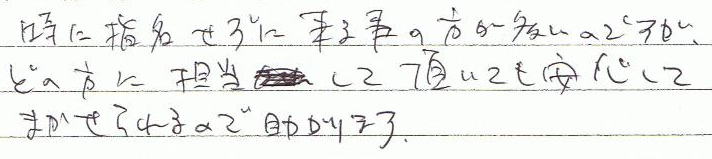 時に指名せずに来る事の方が多いのですが、
どの方に担当して頂いても安心して
まかせられるので助かります.